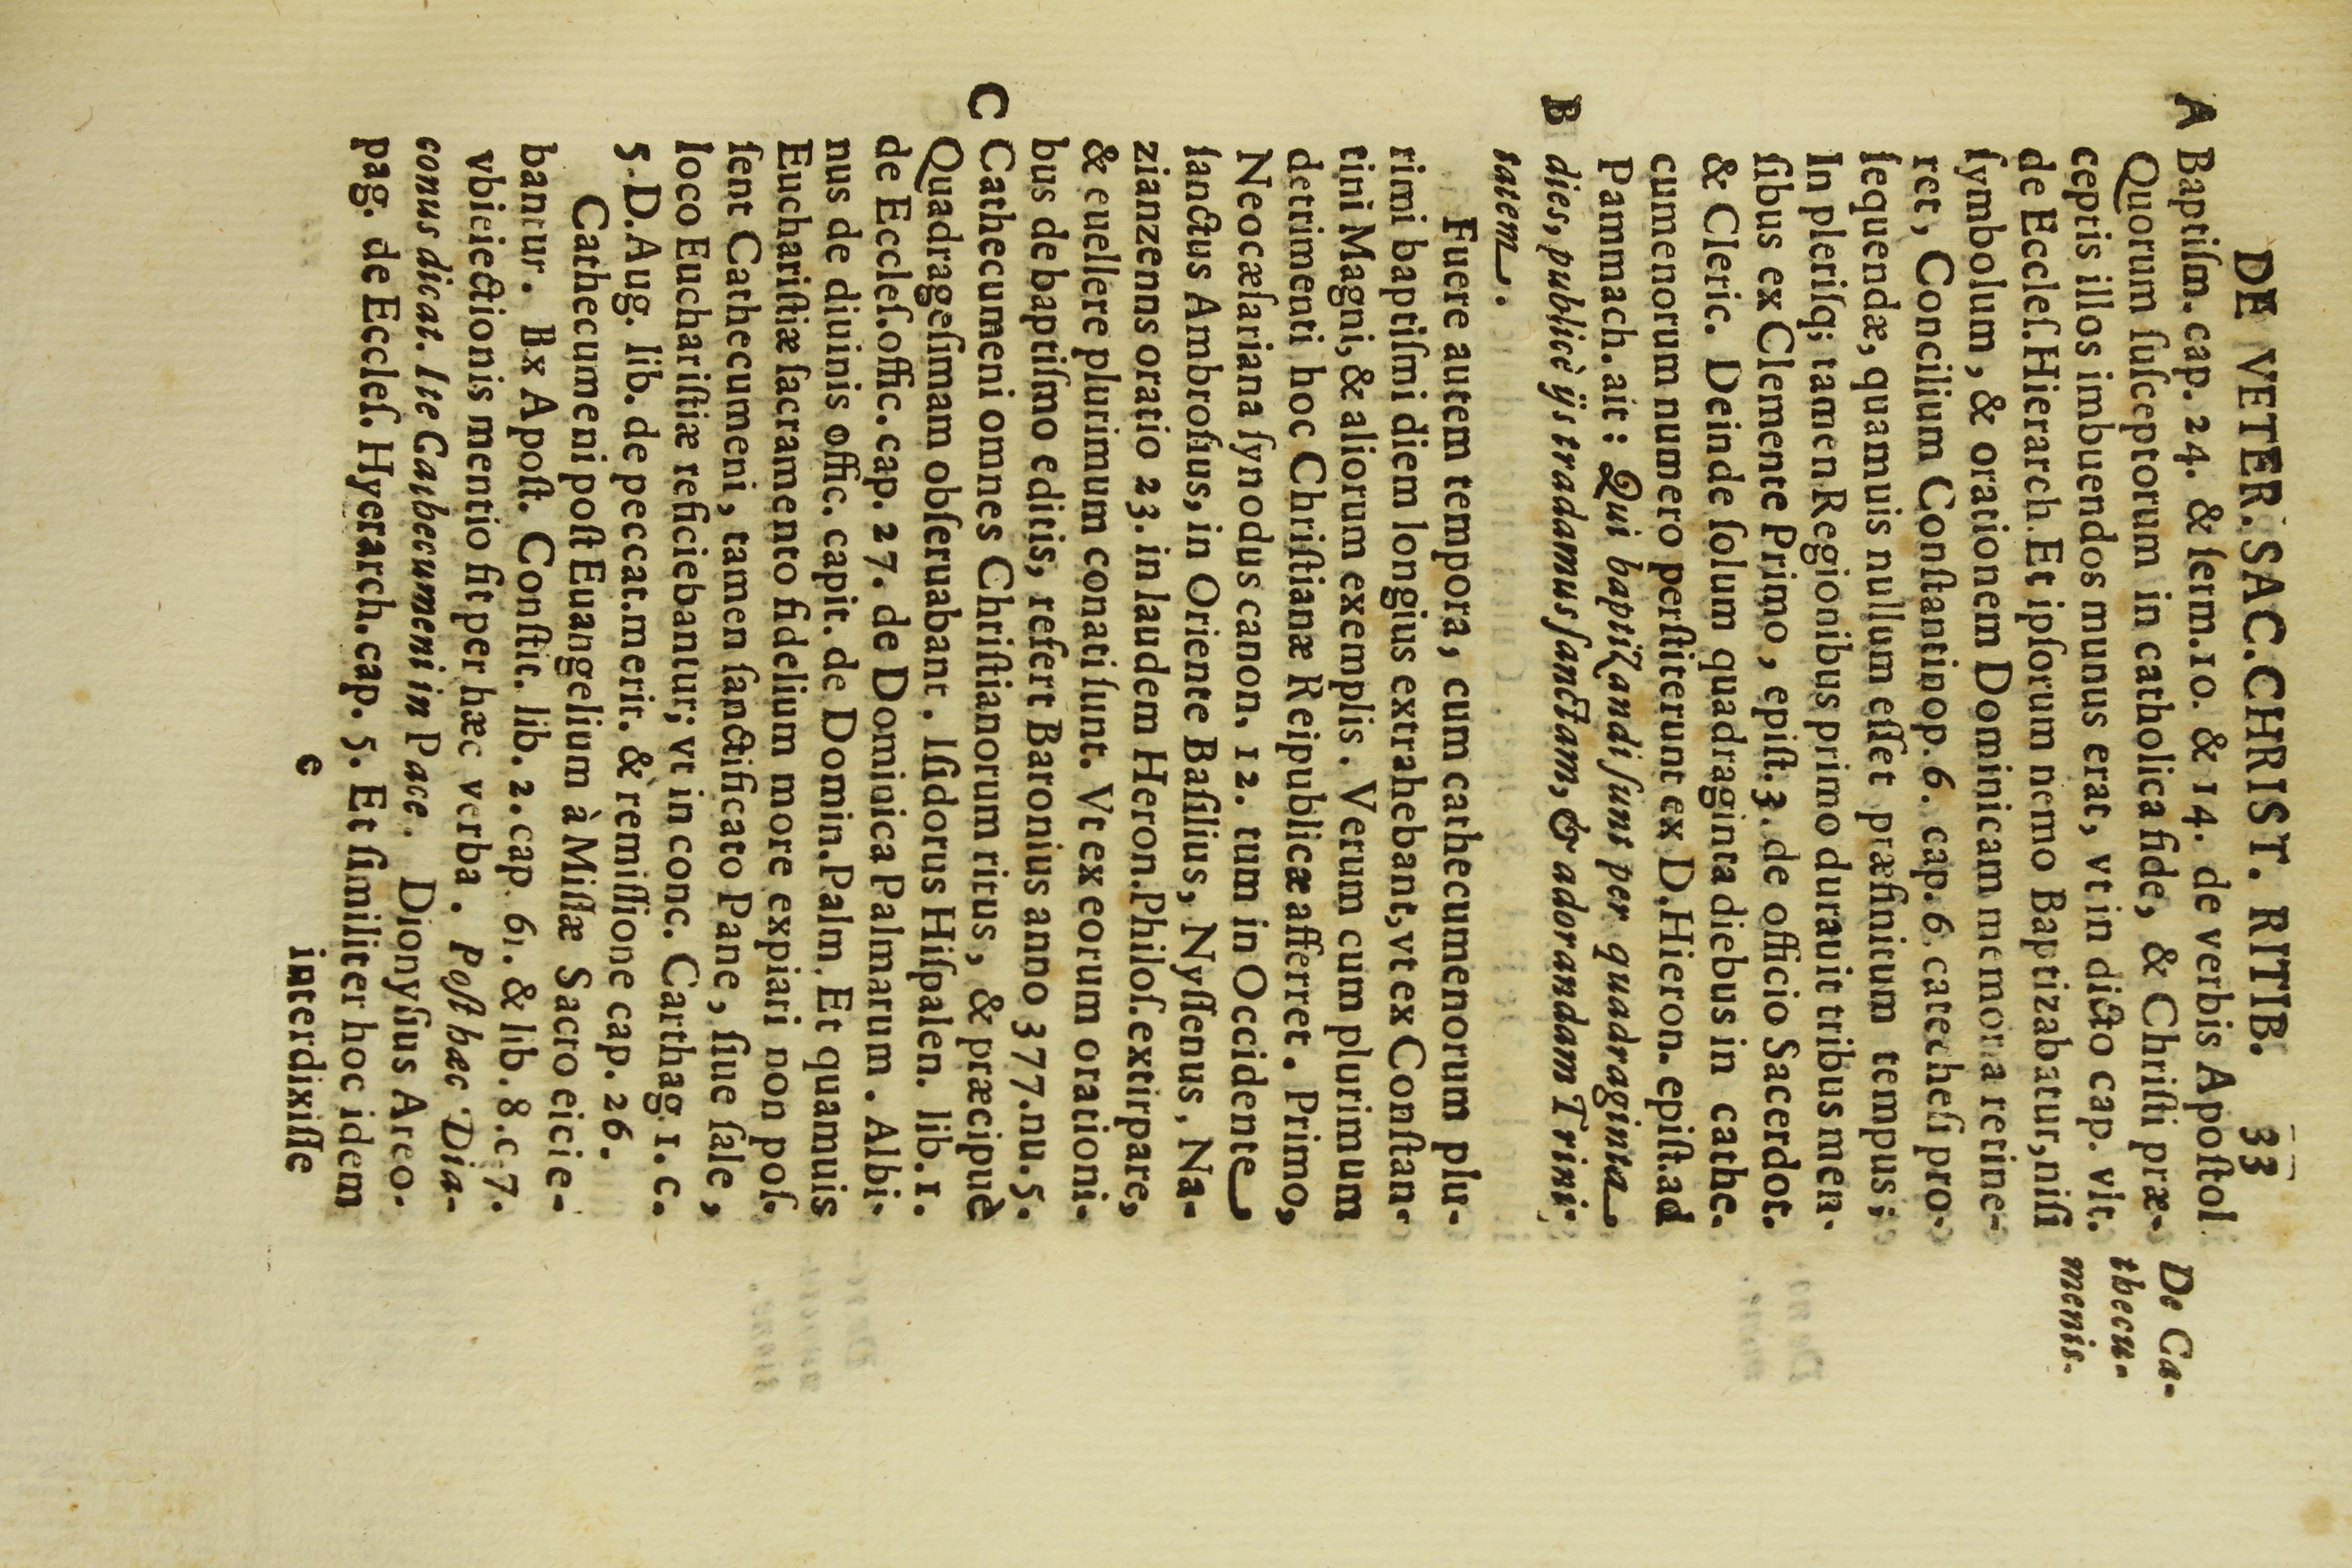 DE VETER. SAC. CHRIST. RITIB. 33
A Baptiſm. cap. 24. & ſerm. 10. & 14. de verbis Apoſtol
Quorum ſuſceptorum in catholica fide, & Chriſti præ-
ceptis illos imbuendos munus erat, vt in dicto cap. vlt.
de Eccleſ. Hierarch. Et ipſorum nemo Baptizabatur, niſi
ſymbolum, & orationem Dominicam memoria retine-
ret, Concilium Conſtantinop. 6. cap. 6. catecheſi pro-
ſequendæ, quamuis nullum eſſet præfinitum tempus;
In pleriſq; tamen Regionibus primo durauit tribus men-
ſibus ex Clemente Primo, epiſt. 3. de officio Sacerdot.
& Cleric. Deinde ſolum quadraginta diebus in cathe-
cumenorum numero perſtiterunt ex D. Hieron. epiſt. ad
Pammach. ait: Qui baptizandi ſunt per quadraginta
B dies, publicè ijs tradamus ſanctam, & adorandam Trini-
tatem.
Fuere autem tempora, cum cathecumenorum plu-
rimi baptiſmi diem longius extrahebant, vt ex Conſtan-
tini Magni, & aliorum exemplis. Verum cum plurimum
detrimenti hoc Chriſtianæ Reipublicæ afferret. Primo,
Neocæſariana ſynodus canon. 12. tum in Occidente
ſanctus Ambroſius, in Oriente Baſilius, Nyſſenus, Na-
zianzenns oratio 23. in laudem Heron. Philoſ. extirpare,
& euellere plurimum conati ſunt. Vt ex eorum orationi-
bus de baptiſmo editis, refert Baronius anno 377. nu. 5.
C Cathecumeni omnes Chriſtianorum ritus, & præcipuè
Quadrageſimam obſeruabant. Iſidorus Hiſpalen. lib. 1.
de Eccleſ. offic. cap. 27. de Dominica Palmarum. Albi-
nus de diuinis offic. capit. de Domin. Palm. Et quamuis
Euchariſtiæ ſacramento fidelium more expiari non poſ-
ſent Cathecumeni, tamen ſanctificato Pane, ſiue ſale,
loco Euchariſtiæ reficiebantur; vt in conc. Carthag. 1. c.
5. D. Aug. lib. de peccat. merit. & remiſſione cap. 26.
Cathecumeni poſt Euangelium à Miſſæ Sacro eicie-
bantur. Ex Apoſt. Conſtit. lib. 2. cap. 61. & lib. 8. c 7.
vbi eiectionis mentio fit per hæc verba. Poſt hæc Dia-
conus dicat. Ite Cathecumeni in Pace. Dionyſius Areo-
pag. de Eccleſ. Hyerarch. cap. 5. Et ſimiliter hoc idem
e interdixiſſe
De Ca-
thecu-
menis.